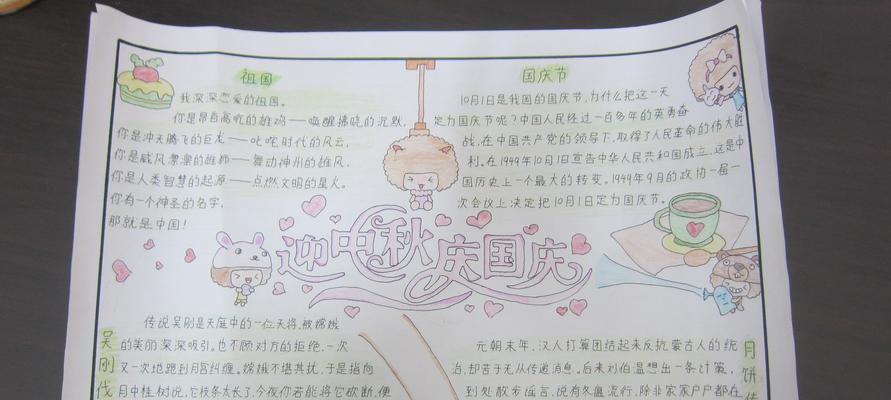 祖国
我深深恋爱的祖国。
你是昂首高吭的雄鸡——唤醒拂晓的沉默，
你是冲天腾飞的巨龙——叱咤时代的风云，
你是威风凛凛的雄狮——舞动神州的雄风，
你是人类智慧的起源——点燃文明的星火。
你有一个神圣的名字，
那就是中国！
国庆节
10月1日是我国的国庆节，为什么把这一天
定为国庆节呢？中国人民经过一百多年的英勇奋
战，在中国共产党的领导下，取得了人民革命的伟大胜
利。在1949年10月1日宣告中华人民共和国成立，这是中
国历史上一个最大的转变。1949年9月的政协一届一
次会议上决定把10月1日定为国庆节。
迎中秋 庆国庆
吴刚伐
传说吴刚是天庭中的一位天将，被嫦娥
的美丽深深吸引。也不顾对方的拒绝，一次
又一次地跑到月宫纠缠。嫦娥不堪其扰，于是指向
月中桂树说，它枝条太长了，今夜你若能将它砍断，便
元朝末年，汉人打算团结起来反抗蒙古人的统
治，却苦于无从传递消息。后来刘伯温想出一条计策，
到处散步谣言，说有冬瘟流行，除非家家户户都在
月饼传